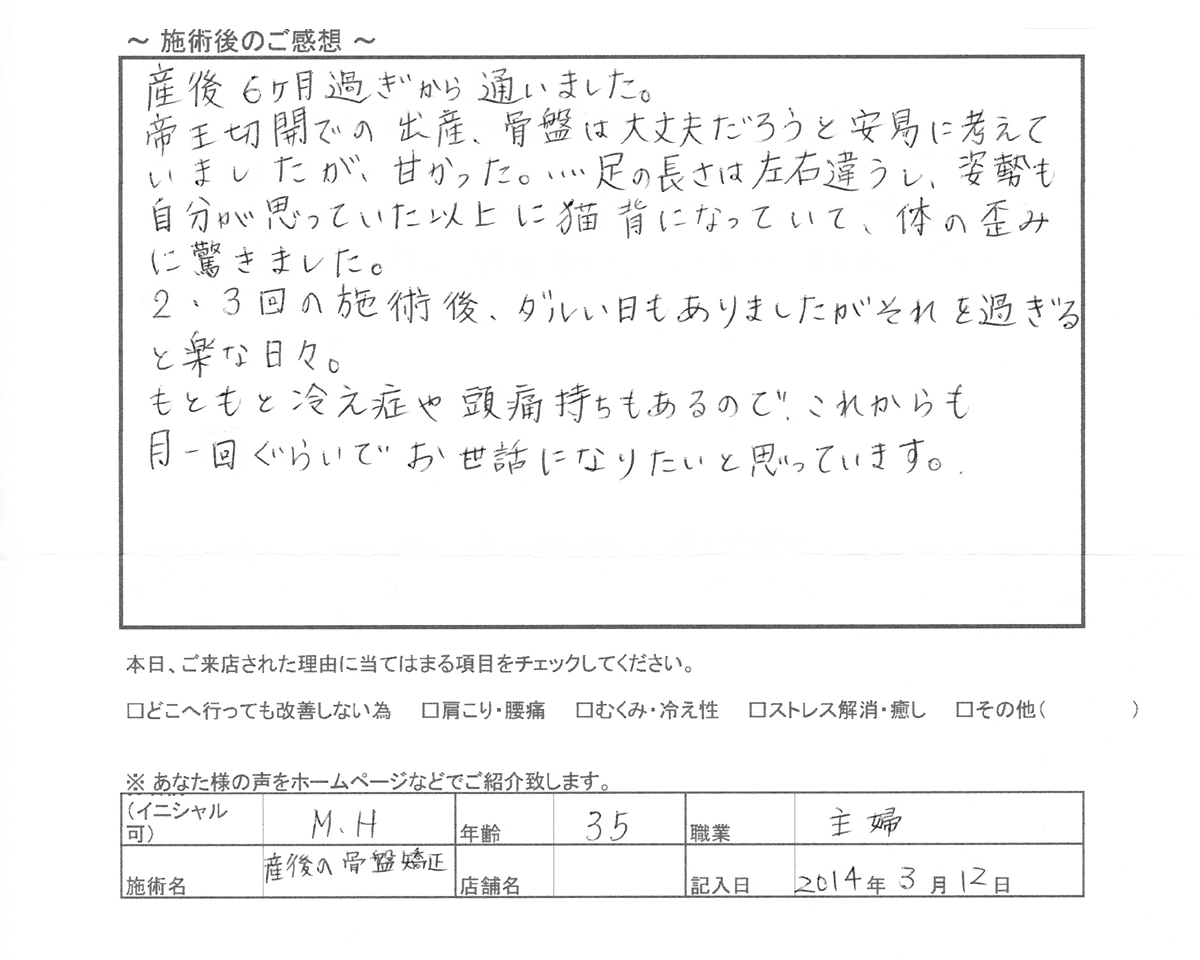 ～ 施術後のご感想 ～
産後6ヶ月過ぎから通いました。
帝王切開での出産、骨盤は大丈夫だろうと安易に考えて
いましたが、甘かった。……足の長さは左右違うし、姿勢も
自分が思っていた以上に猫背になっていて、体の歪み
に驚きました。
2・3回の施術後、ダルい日もありましたがそれを過ぎる
と楽な日々。
もともと冷え症や頭痛持ちもあるので、これからも
月一回ぐらいでお世話になりたいと思っています。
本日、ご来店された理由に当てはまる項目をチェックしてください。
□どこへ行っても改善しない為 □肩こり・腰痛 □むくみ・冷え性 □ストレス解消・癒し □その他( )
※ あなた様の声をホームページなどでご紹介致します。
(イニシャル可) M.H 年齢 35 職業 主婦
施術名 産後の骨盤矯正 店舗名 記入日 2014年3月12日